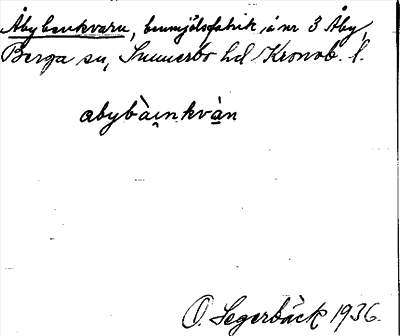 Åbybenkvarn, benmjölsfabrik, å nr 3 Åby,
Berga sn, Sunnerbo hd Kronob. l.
abybàin.kvàn
O. Segerbäck 1936.